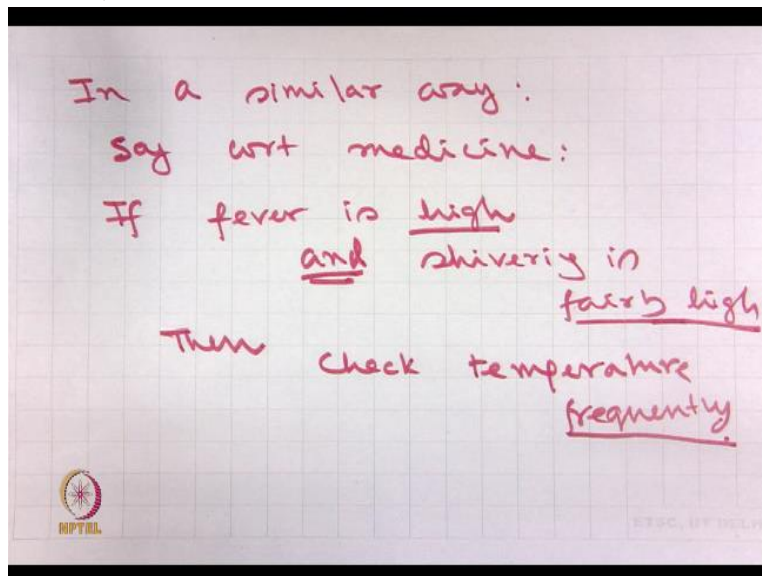 In a similar way:
Say wrt medicine:
If fever is high
and shivering is
fairly high
Then check temperature
frequently.
NPTEL
ETSC, IIT DELHI